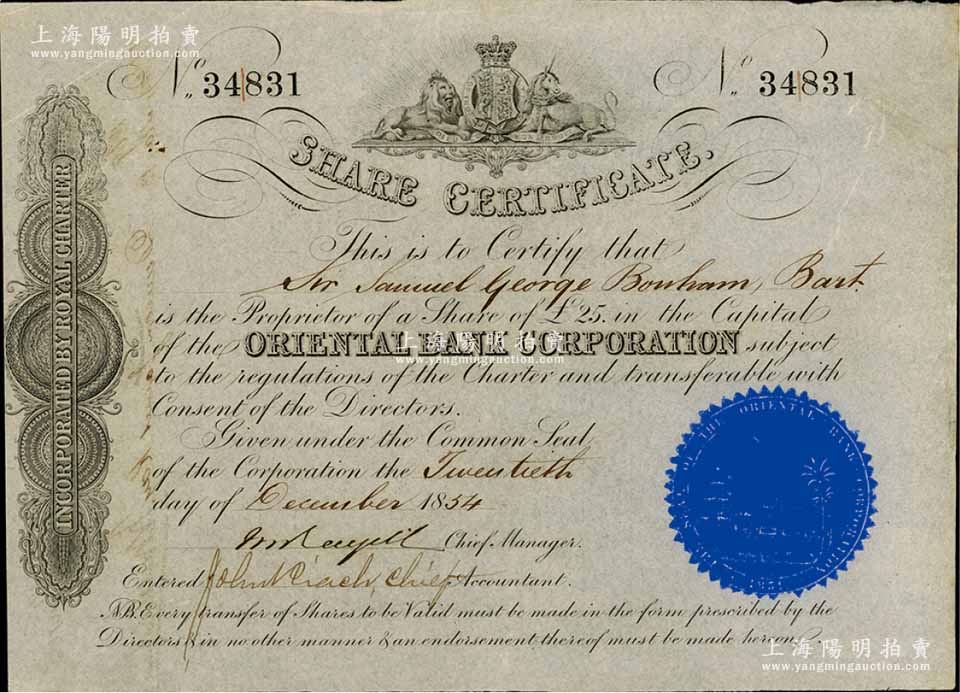 上海陽明拍賣
www.yangmingauction.com
No 34831
No 34831
SHARE CERTIFICATE.
INCORPORATED BY ROYAL CHARTER
This is to Certify that
Sir Samuel George Bonham, Bart.
is the Proprietor of a Share of £25. in the Capital
of the ORIENTAL BANK CORPORATION subject
上海陽明拍賣
www.yangmingauction.com
to the regulations of the Charter and transferable with
Consent of the Directors.
Given under the Common Seal
of the Corporation the Twentieth
day of December 1854
Chief Manager.
Entered John Chief Accountant.
N.B. Every transfer of Shares to be Valid must be made in the form prescribed by the
Directors & in no other manner & an endorsement thereof must be made hereon.
OF THE ORIENTAL BANK CORPORATION
上海陽明拍賣
www.yangmingauction.com